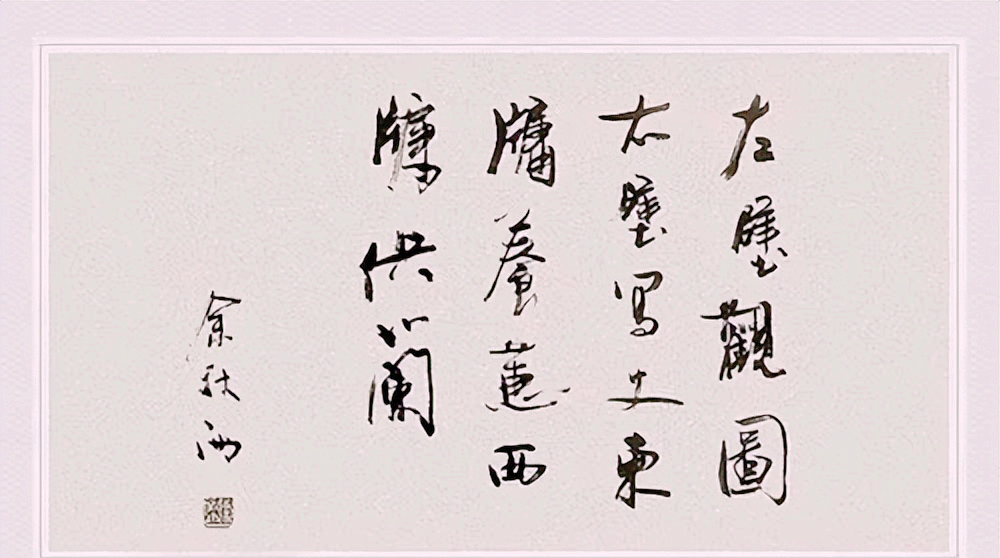 左壁觀圖
右壁写史東
牖養蕙西
牖供蘭
余秋雨